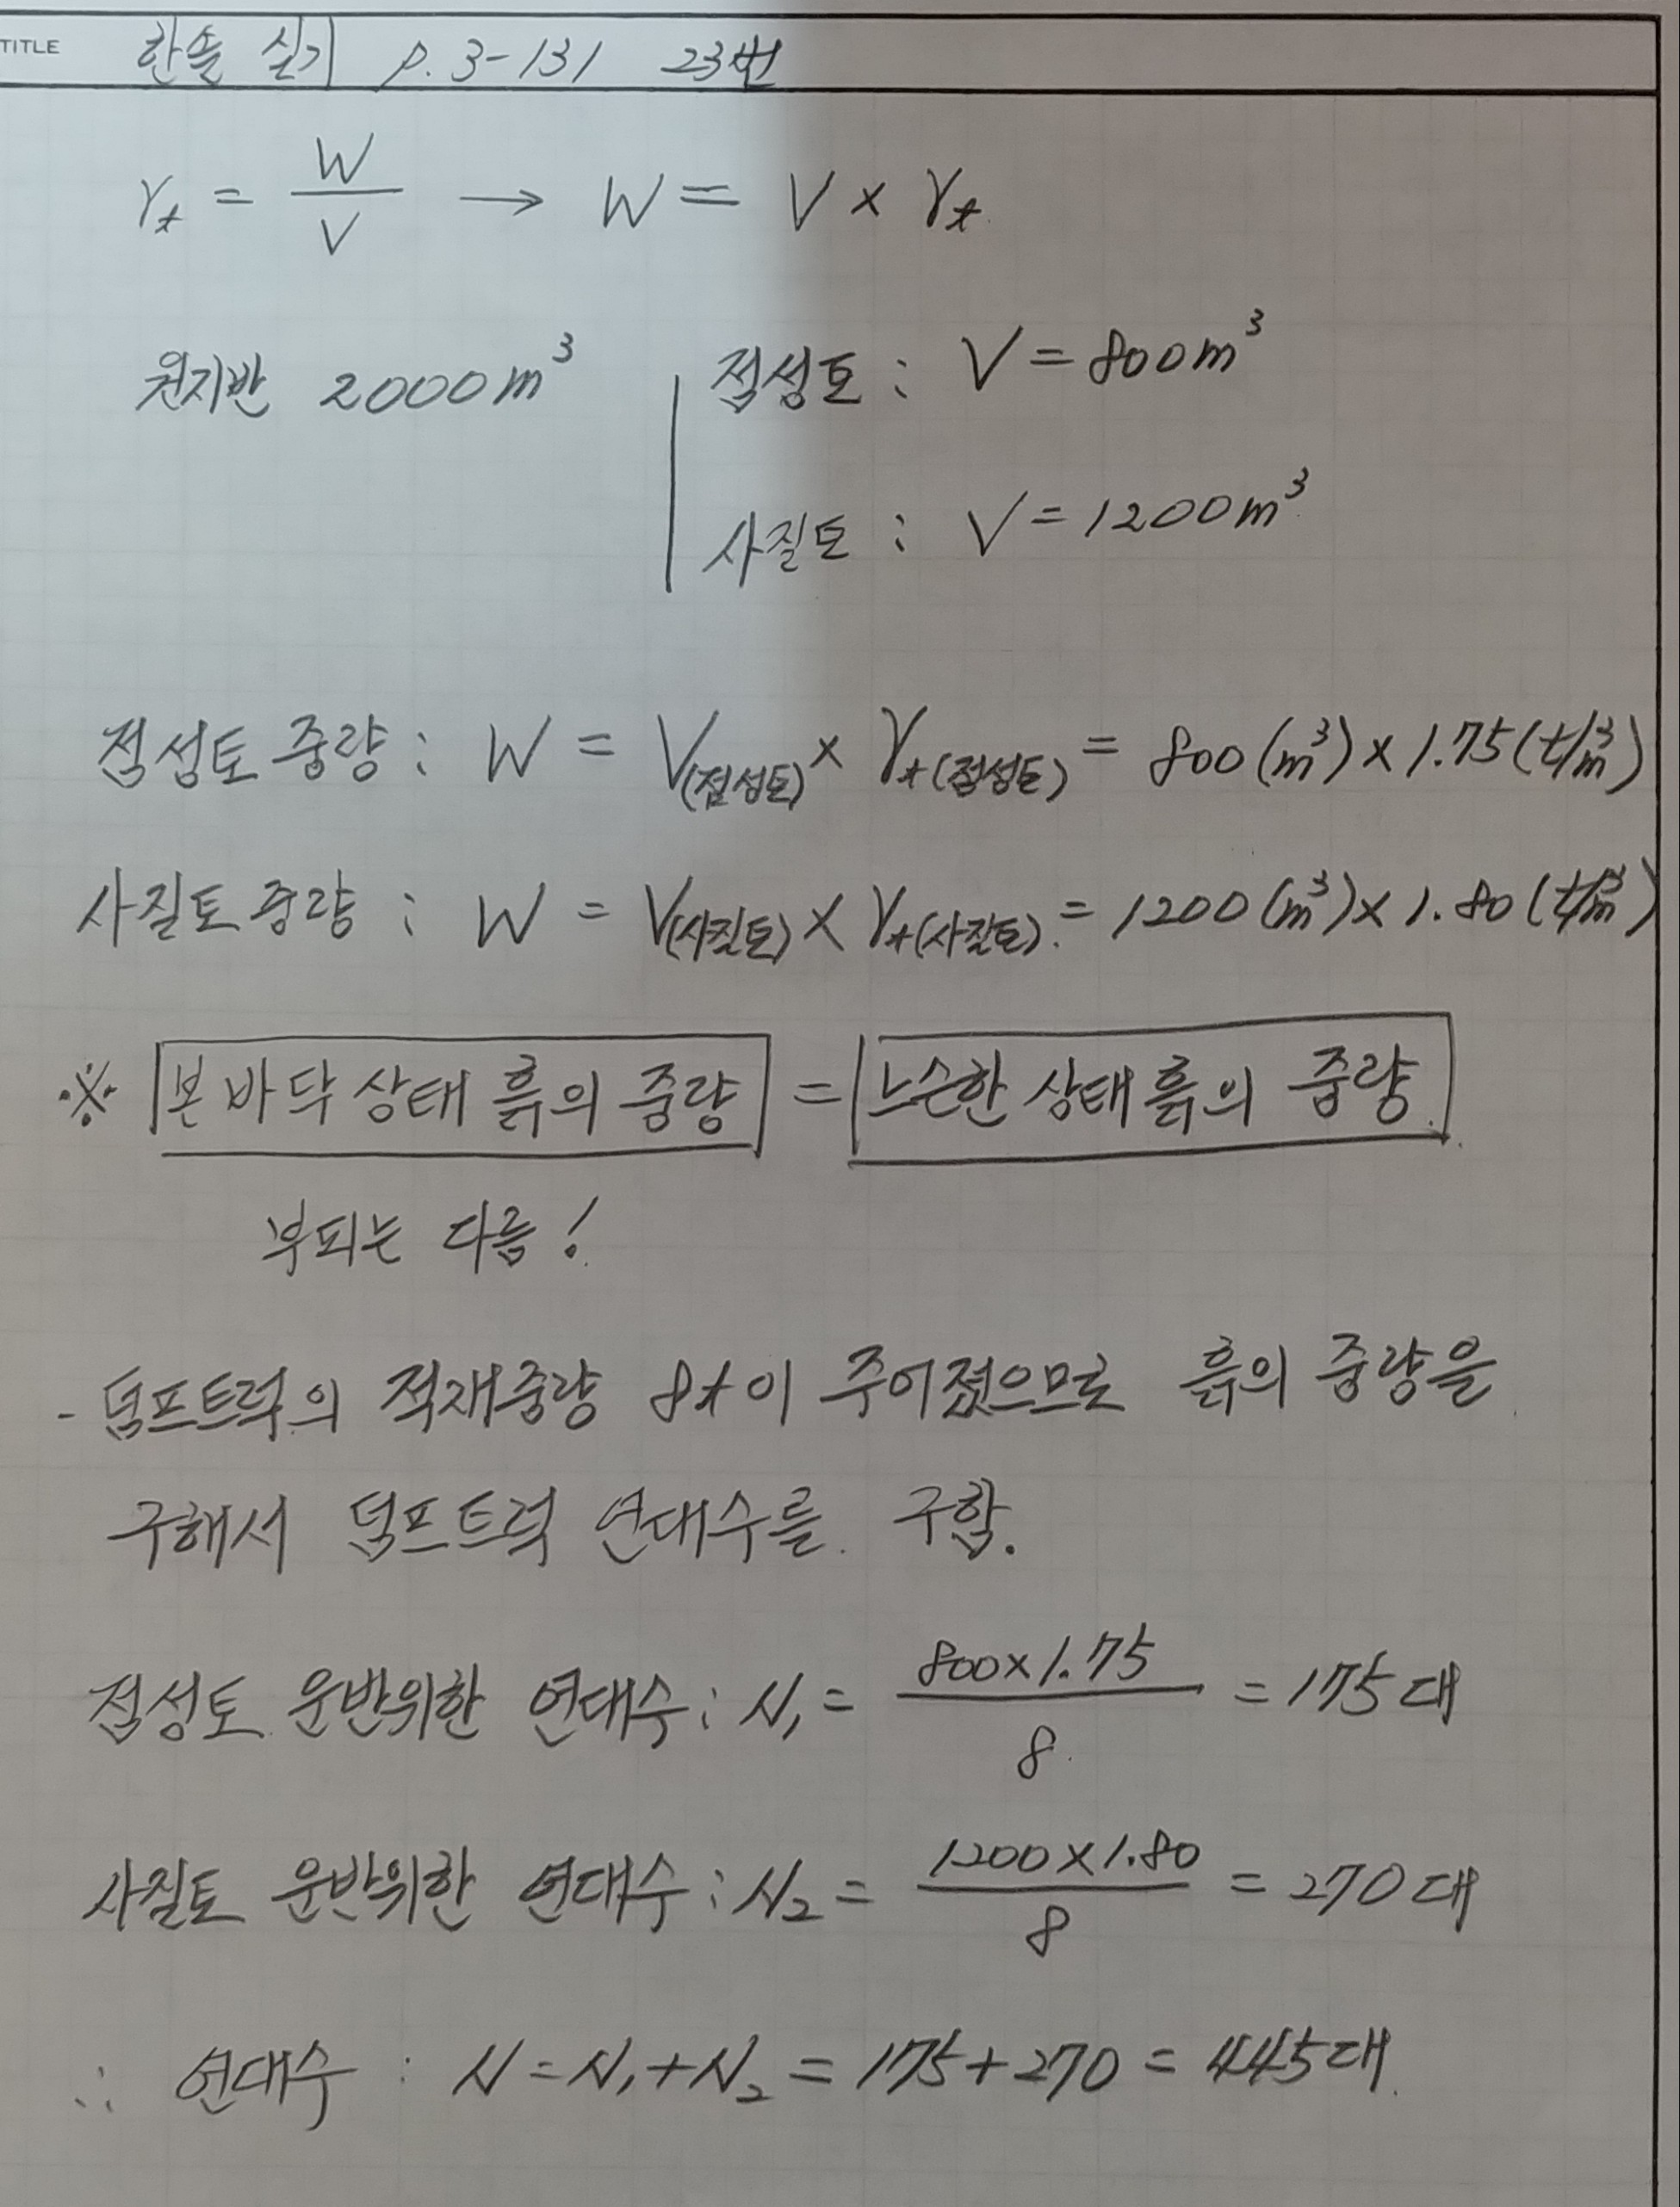 TITLE 한솔 실기 p. 3-131 23번
γt = W/V → W = V × γt
원지반 2000m³ | 점성토 : V = 800m³
사질토 : V = 1200m³
점성토 중량 : W = V(점성토) × γt(점성토) = 800(m³) × 1.75(t/m³)
사질토 중량 : W = V(사질토) × γt(사질토) = 1200(m³) × 1.80(t/m³)
※ 본바닥 상태 흙의 중량 = 느슨한 상태 흙의 중량
부피는 다름!
- 덤프트럭의 적재중량 8t이 주어졌으므로 흙의 중량을
구해서 덤프트럭 연대수를 구함.
점성토 운반위한 연대수 : N₁ = 800×1.75/8 = 175대
사질토 운반위한 연대수 : N₂ = 1200×1.80/8 = 270대
∴ 연대수 : N = N₁ + N₂ = 175 + 270 = 445대